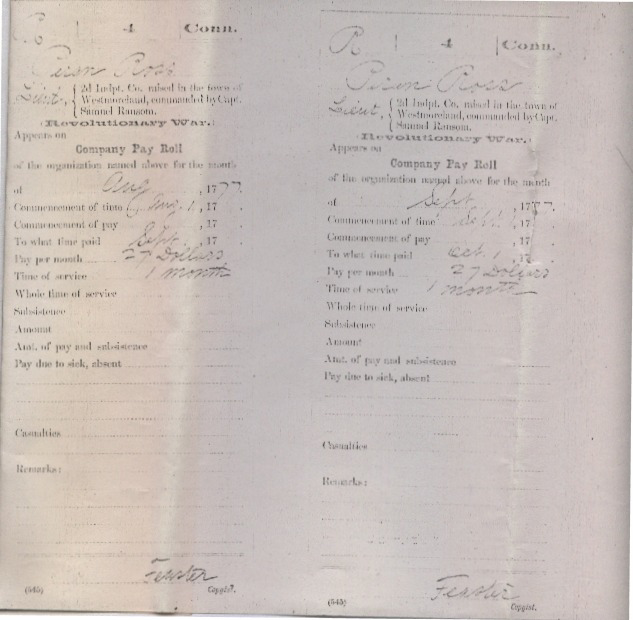 R | 4 | Conn.
Peren Ross
Lieut, { 2d Indpt. Co. raised in the town of
Westmoreland, commanded by Capt.
Samuel Ransom.
(Revolutionary War.)
Appears on
Company Pay Roll
of the organization named above for the month
of Aug , 1777.
Commencement of time Aug. 1 , 17
Commencement of pay , 17
To what time paid Sept. , 17
Pay per month 27 Dollars
Time of service 1 month
Whole time of service
Subsistence
Amount
Amt. of pay and subsistence
Pay due to sick, absent
Casualties
Remarks:
Feaster
(545) Copyist.
R | 4 | Conn.
Peren Ross
Lieut, { 2d Indpt. Co. raised in the town of
Westmoreland, commanded by Capt.
Samuel Ransom.
(Revolutionary War.)
Appears on
Company Pay Roll
of the organization named above for the month
of Sept. , 1777.
Commencement of time Sept. 1 , 17
Commencement of pay , 17
To what time paid Oct. 1 , 17
Pay per month 27 Dollars
Time of service 1 month
Whole time of service
Subsistence
Amount
Amt. of pay and subsistence
Pay due to sick, absent
Casualties
Remarks:
Feaster
(545) Copyist.